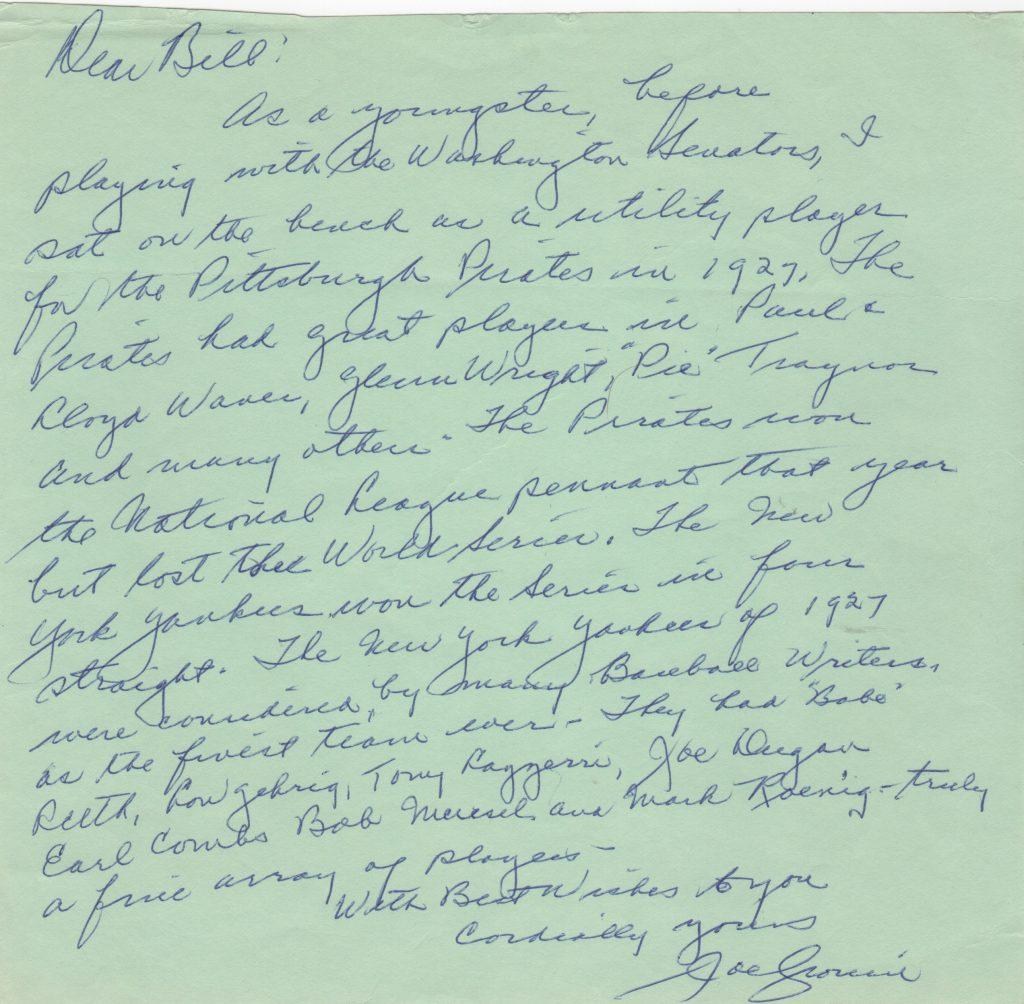 Dear Bill:
As a youngster, before
playing with the Washington Senators, I
sat on the bench as a utility player
for the Pittsburgh Pirates in 1927. The
Pirates had great players in Paul &
Lloyd Waner, Glenn Wright, "Pie" Traynor
and many others - The Pirates won
the National League pennant that year
but lost the World Series. The New
York Yankees won the Series in four
straight. The New York Yankees of 1927
were considered, by many Baseball Writers,
as the finest team ever - They had "Babe"
Ruth, Lou Gehrig, Tony Lazzerri, Joe Dugan
Earl Combs Bob Meusel and Mark Koenig - truly
a fine array of players -
With Best Wishes to you
Cordially yours
Joe Cronin